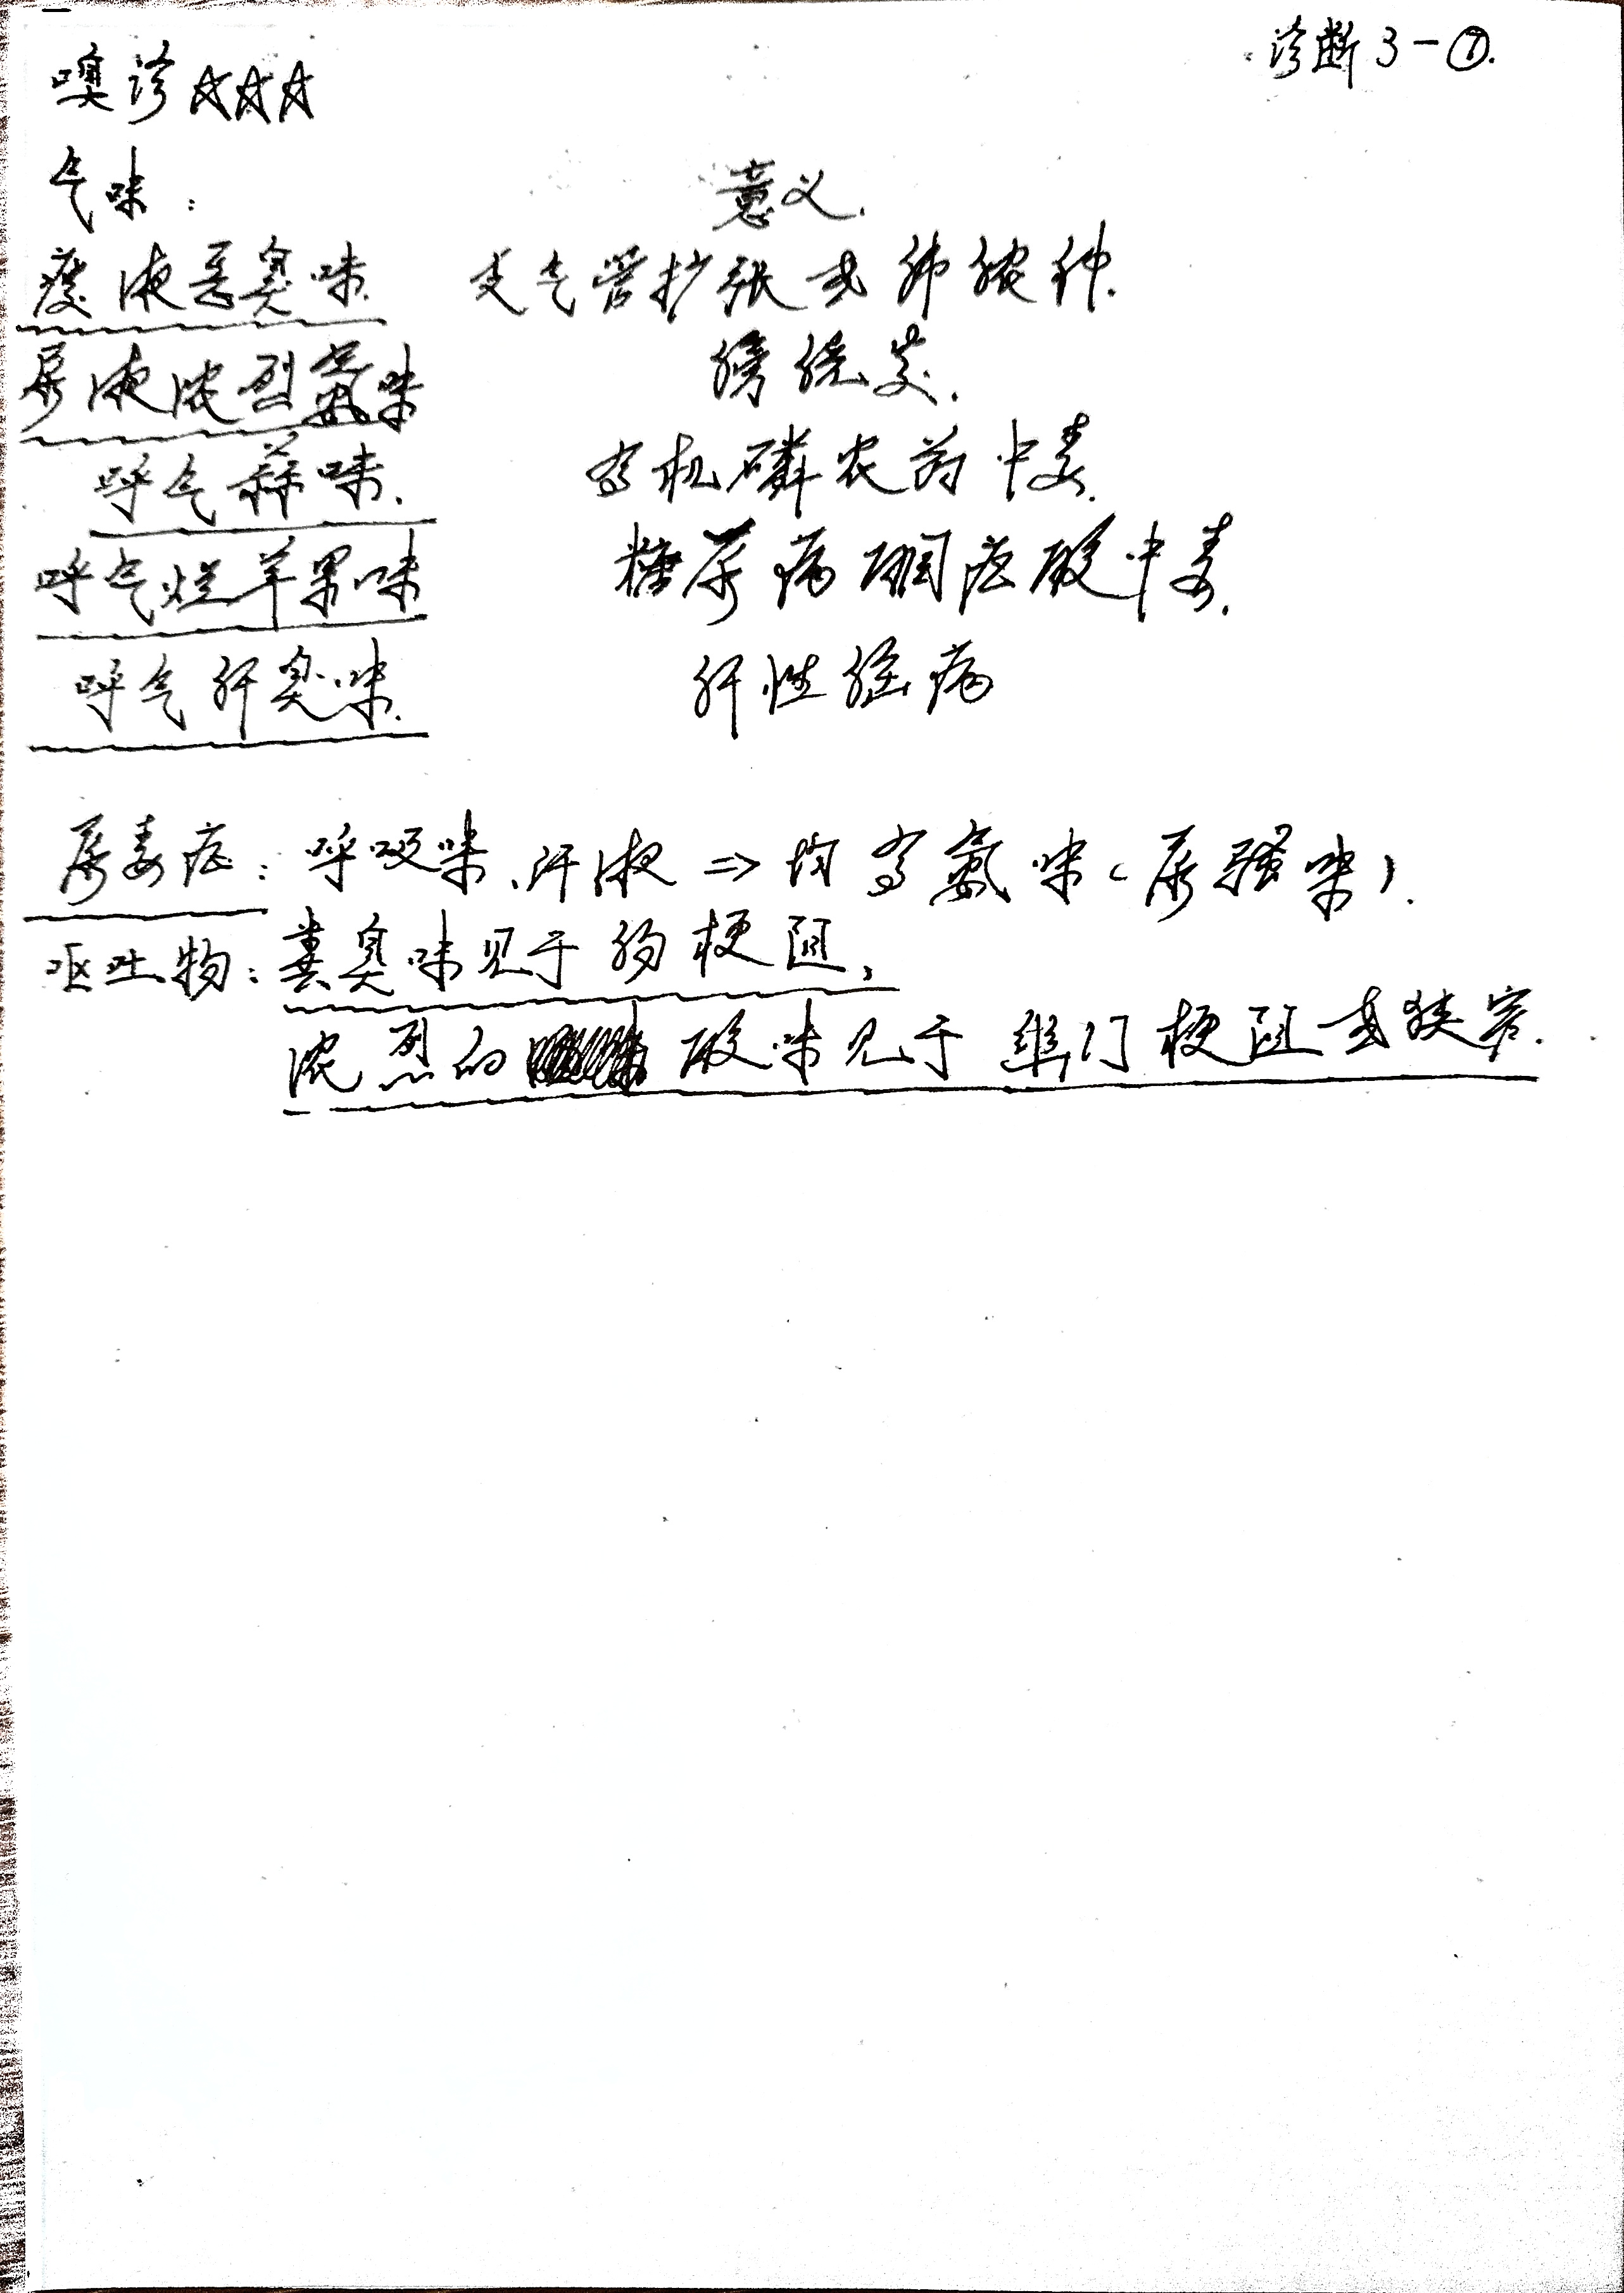 诊断3-⑦.
嗅诊☆☆☆
气味: 意义.
痰液恶臭味. 支气管扩张或肺脓肿.
尿液浓烈氨味 膀胱炎.
呼气蒜味. 有机磷农药中毒.
呼气烂苹果味 糖尿病酮症酸中毒.
呼气肝臭味. 肝性脑病
尿毒症: 呼吸味、汗液⇒均有氨味(尿骚味).
呕吐物: 粪臭味见于肠梗阻,
浓烈的酸味见于幽门梗阻或狭窄.